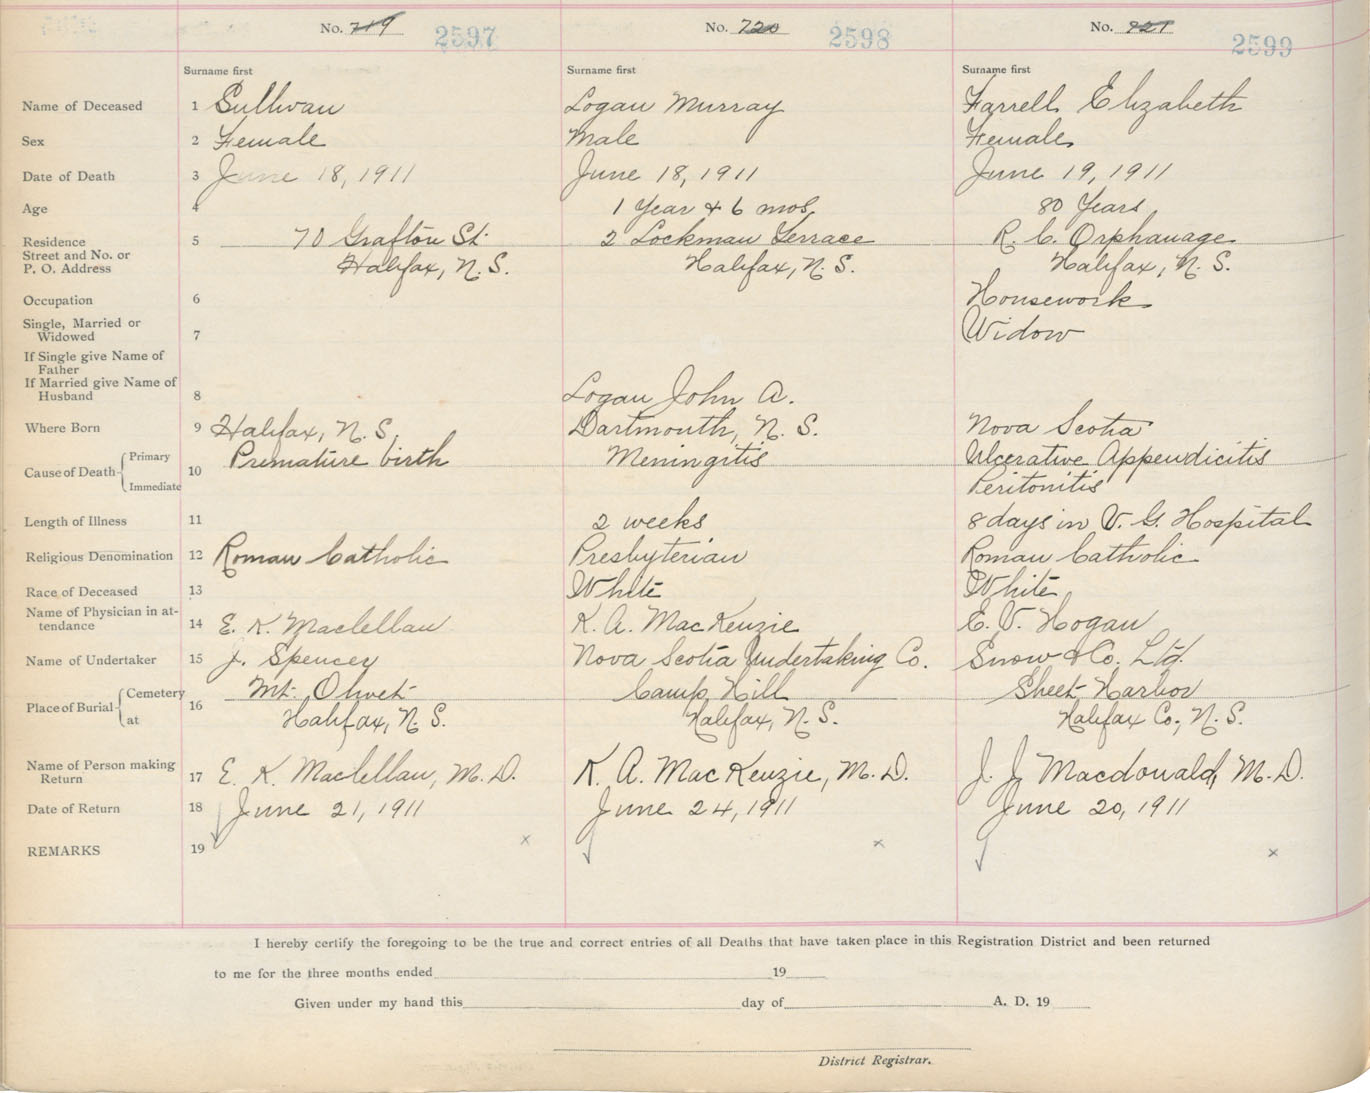 No. 719 2597 No. 720 2598 No. 721 2599
Surname first Surname first Surname first
Name of Deceased 1 Sullivan Logan Murray Farrell Elizabeth
Sex 2 Female Male Female
Date of Death 3 June 18, 1911 June 18, 1911 June 19, 1911
Age 4 1 Year & 6 mos. 80 Years
Residence 5 70 Grafton St. 2 Lockman Terrace R. C. Orphanage
Street and No. or
P. O. Address Halifax, N. S. Halifax, N. S. Halifax, N. S.
Occupation 6 Housework
Single, Married or
Widowed 7 Widow
If Single give Name of
Father
If Married give Name of
Husband 8 Logan John A.
Where Born 9 Halifax, N. S. Dartmouth, N. S. Nova Scotia
Cause of Death Primary 10 Premature birth Meningitis Ulcerative Appendicitis
Immediate Peritonitis
Length of Illness 11 2 weeks 8 days in V. G. Hospital
Religious Denomination 12 Roman Catholic Presbyterian Roman Catholic
Race of Deceased 13 White White
Name of Physician in at-
tendance 14 E. K. Maclellan K. A. MacKenzie E. V. Hogan
Name of Undertaker 15 J. Spencer Nova Scotia Undertaking Co. Snow & Co. Ltd.
Place of Burial Cemetery 16 Mt. Olivet Camp Hill Sheet Harbor
at Halifax, N. S. Halifax, N. S. Halifax Co., N. S.
Name of Person making
Return 17 E. K. Maclellan, M. D. K. A. MacKenzie, M. D. J. J. Macdonald, M. D.
Date of Return 18 June 21, 1911 June 24, 1911 June 20, 1911
REMARKS 19 x x x
I hereby certify the foregoing to be the true and correct entries of all Deaths that have taken place in this Registration District and been returned
to me for the three months ended 19
Given under my hand this day of A. D. 19
District Registrar.